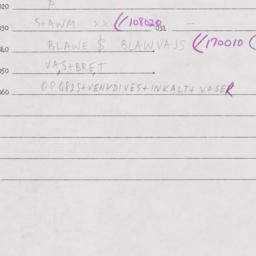 020
S+AWM xx ((108020
030 031 —
BLAWE $ BLAWVAJS ((170010 (
040
VAS+BRET
050
OPGR2S+VENKDIVES+INKALT+VASER
060